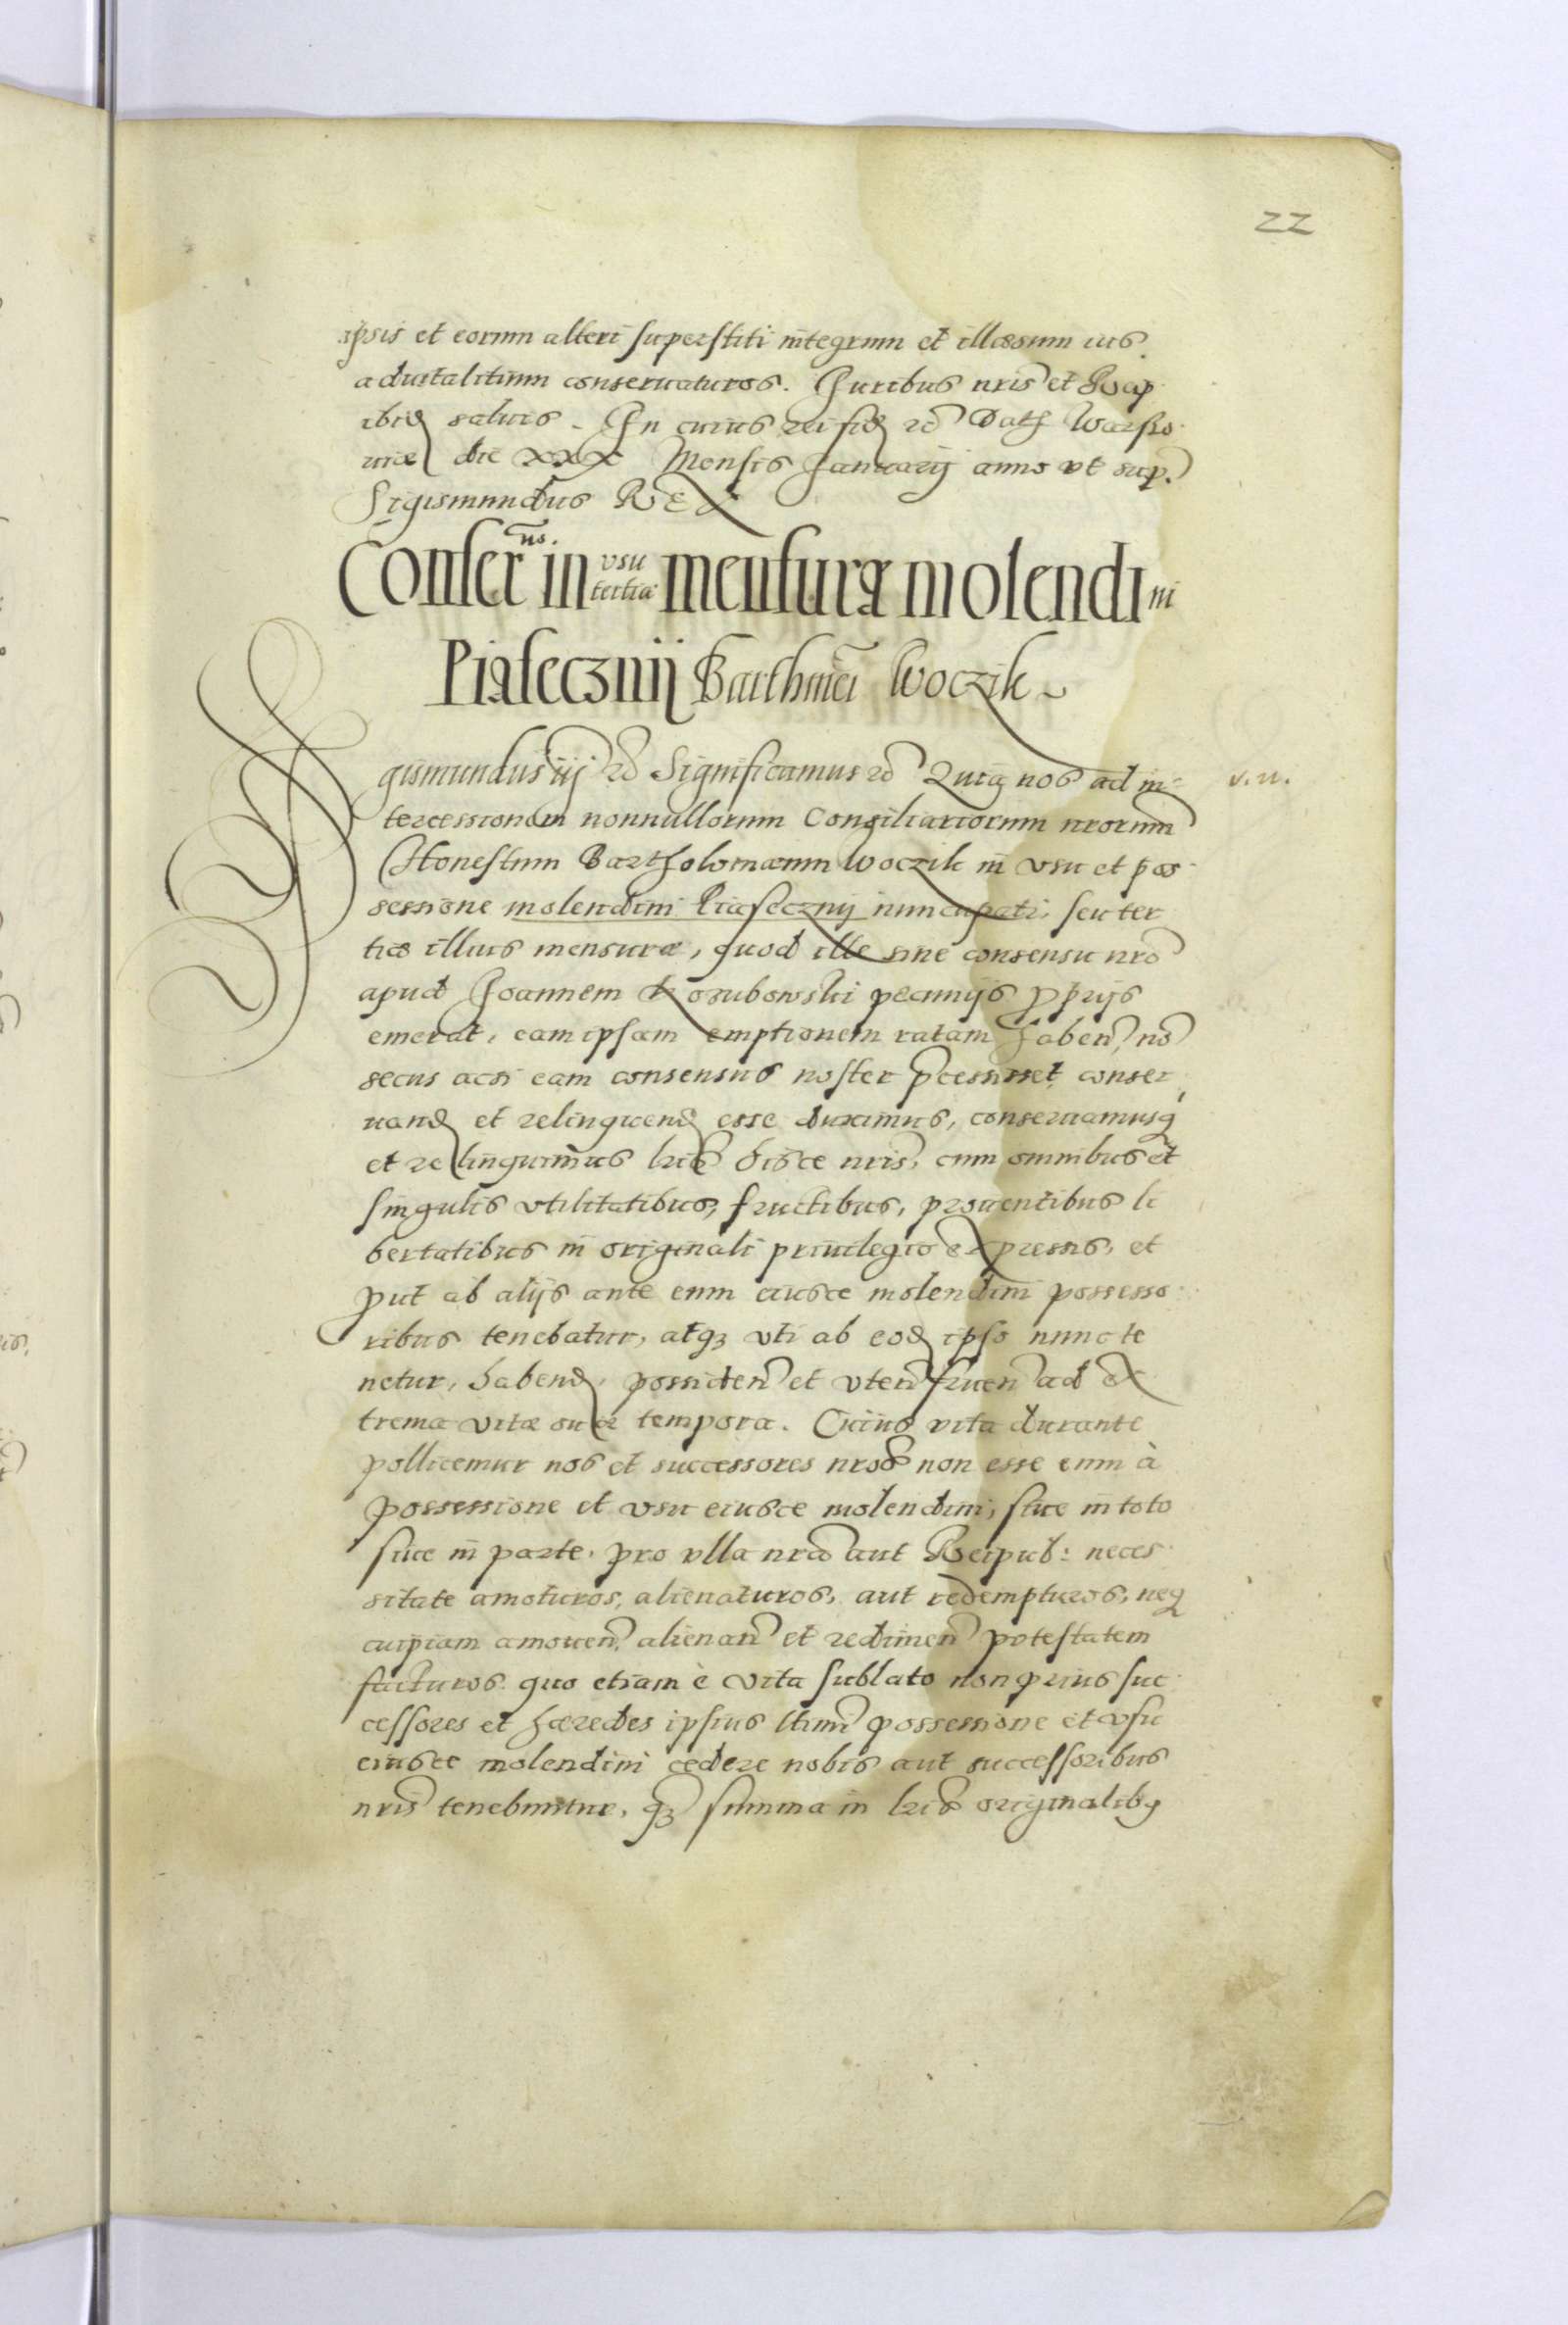 22
ipsis et eorum alteri superstiti integrum et illæsum ius
aduitalitium conseruaturos. Iuribus nris et Reip
ibid saluis. In cuius rei fid rc Dat Warsso
uiæ die XXX Mensis Januarij anno vt sup.
Sigismundus REX
Conser ns. in vsu tertiæ mensuræ molendini
Piasecznij Barthmei Woczik
gismundus iij rc Significamus rc Quia nos ad in=
v. n.
tercessionem nonnullorum Consiliariorum nrorum
Honestum Bartholomæum Woczik in vsu et pos
sessione molendini Piasecznij nuncupati, seu ter
tiæ illius mensuræ, quod ille sine consensu nro
apud Joannem Kozubowski pecunijs pprijs
emerat, eam ipsam emptionem ratam haben, no
secus acsi eam consensus noster pcessisset, conser
uand et relinquend esse duximus, conseruamusq
et relinquimus lris hisce nris, cum omnibus et
singulis vtilitatibus, fructibus, prouentibus li
bertatibus in originali priuilegio expressis, et
put ab alijs ante eum eiusce molendini possesso
ribus tenebatur, atq vti ab eod ipso nunc te
netur, habend, possiden et vten fruen ad ex
trema vitæ suæ tempora. Cuius vita durante
pollicemur nos et successores nros non esse eum à
possessione et vsu eiusce molendini, siue in toto
siue in parte, pro vlla nra aut Reipub: neces
sitate amoturos, alienaturos, aut redempturos, neq
cuipiam amouen, alienan et redimen potestatem
facturos. quo etiam è vita sublato non prius suc
cessores et hæredes ipsius ltimi possessione et vsu
eiusce molendini cedere nobis aut successoribus
nris tenebuntur, q summa in lris originalib